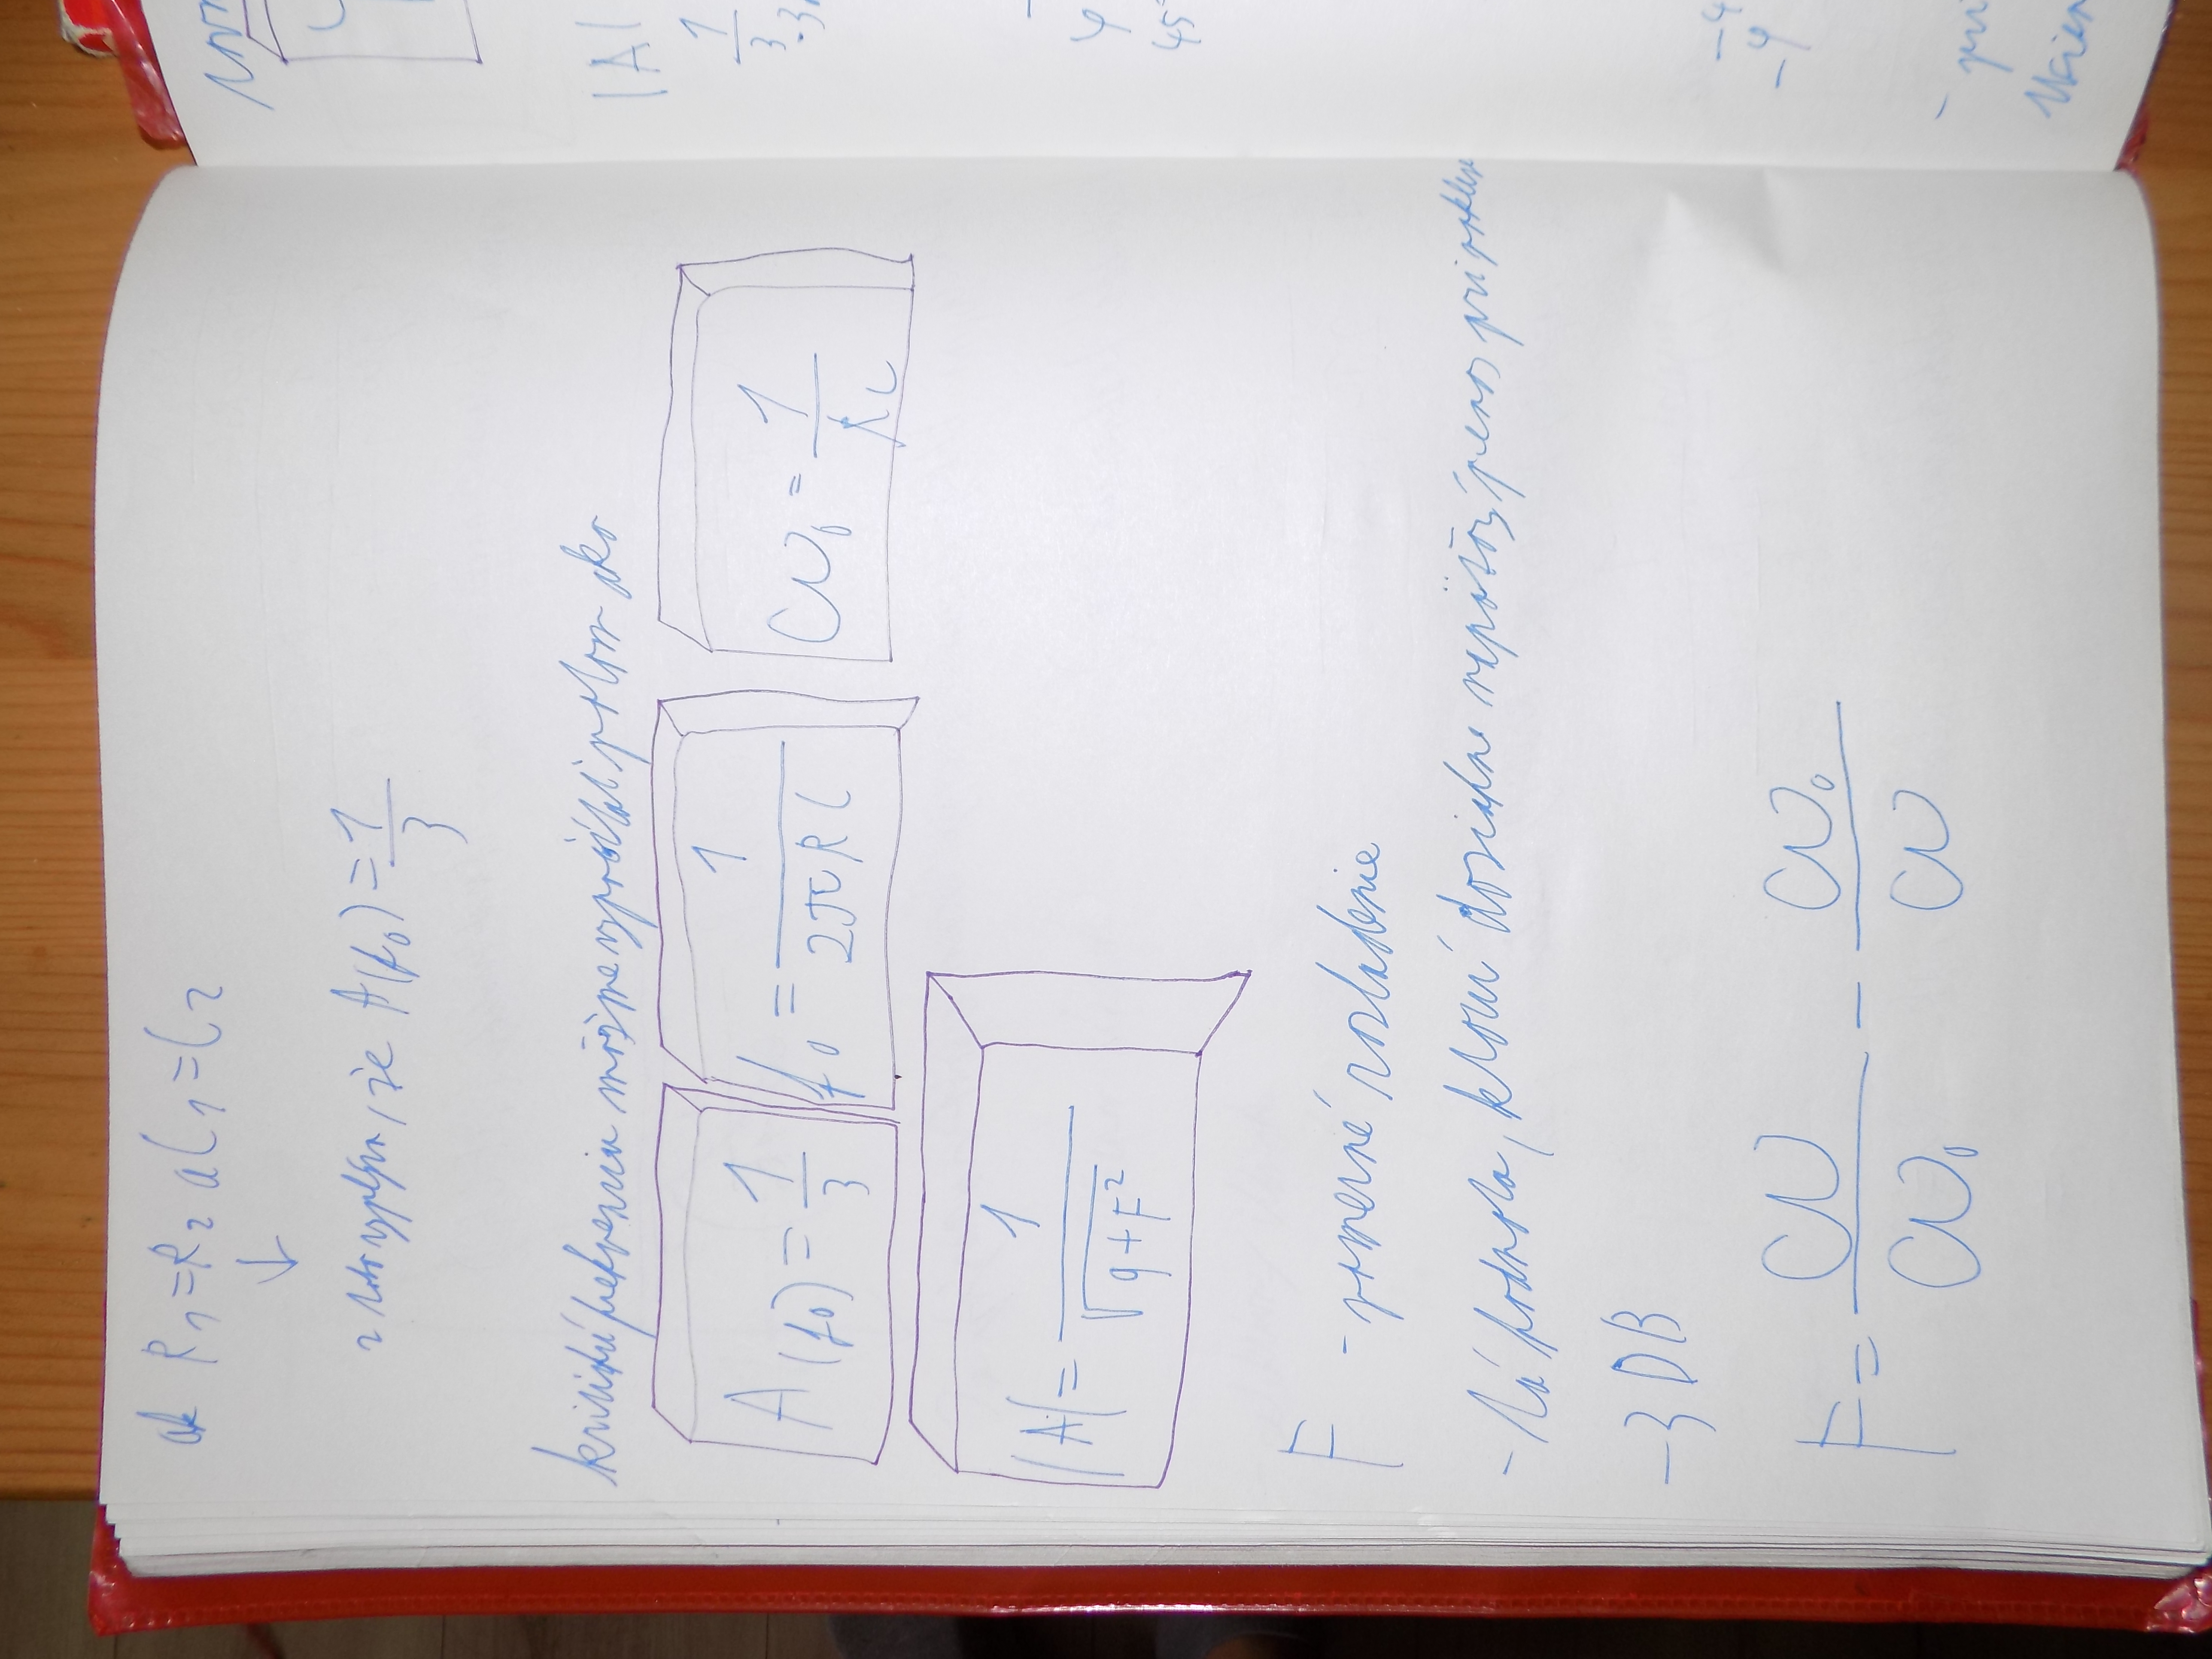 ak R₁=R₂ a C₁=C₂
↓
z toho vyplýva, že A(f₀) = 1/3
kritickú frekvenciu môžme vypočítať potom ako
A(f₀) = 1/3
f₀ = 1/(2πRC)
ω₀ = 1/(RC)
|A| = 1/√(9+F²)
F - pomerné rozladenie
- je hodnota, ktorú dosiahne napäťový prenos pri poklese
-3DB
F = ω/ω₀ - ω₀/ω
|A|
1/3
φ
45°
-φ